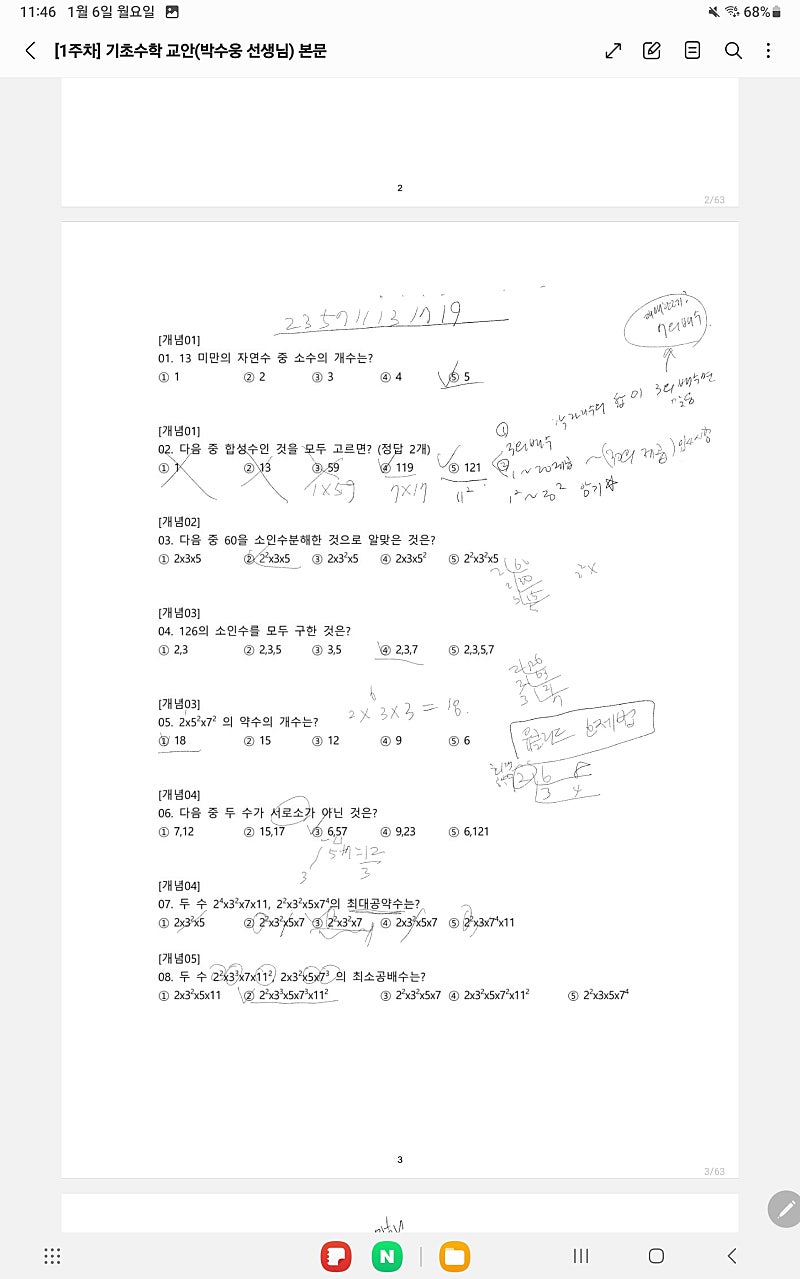 11:46 1월 6일 월요일 68%
[1주차] 기초수학 교안(박수웅 선생님) 본문
2
2/63
2 3 5 7 11 13 17 19
7의배수
[개념01]
01. 13 미만의 자연수 중 소수의 개수는?
① 1 ② 2 ③ 3 ④ 4 ⑤ 5
합이 3의 배수면
[개념01]
①
3의배수
02. 다음 중 합성수인 것을 모두 고르면? (정답 2개)
① 1 ② 13 ③ 59 ④ 119 ⑤ 121
② 1~20제곱
1x59 7x17 11²
1²~20² 암기
[개념02]
03. 다음 중 60을 소인수분해한 것으로 알맞은 것은?
① 2x3x5 ② 2²x3x5 ③ 2x3²x5 ④ 2x3x5² ⑤ 2²x3²x5
2 60
2 30
3 15
5
2²x
[개념03]
04. 126의 소인수를 모두 구한 것은?
① 2,3 ② 2,3,5 ③ 3,5 ④ 2,3,7 ⑤ 2,3,5,7
2 126
3 63
3 21
7
[개념03]
6
2 x 3 x 3 = 18.
05. 2x5²x7² 의 약수의 개수는?
① 18 ② 15 ③ 12 ④ 9 ⑤ 6
유클리드 호제법
2 6 8
3 4
[개념04]
06. 다음 중 두 수가 서로소가 아닌 것은?
① 7,12 ② 15,17 ③ 6,57 ④ 9,23 ⑤ 6,121
5+7=12
3 3
[개념04]
07. 두 수 2⁴x3²x7x11, 2²x3²x5x7⁴의 최대공약수는?
① 2x3²x5 ② 2²x3²x5x7 ③ 2²x3²x7 ④ 2x3²x5x7 ⑤ 2²x3x7⁴x11
[개념05]
08. 두 수 2²x3³x7x11², 2x3²x5x7³ 의 최소공배수는?
① 2x3²x5x11 ② 2²x3³x5x7³x11² ③ 2²x3²x5x7 ④ 2x3²x5x7²x11² ⑤ 2²x3x5x7⁴
3
3/63